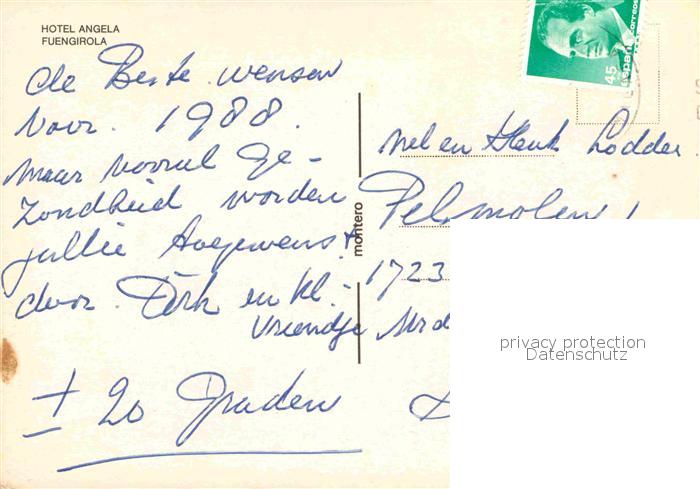 HOTEL ANGELA
FUENGIROLA
de Beste wensen
voor. 1988.
maar vooral ge-
zondheid worden
jullie toegewenst
door. Dirk en kl.-
vriendje
± 20 Graden
montero
45
españa
correos
Nel en Henk Lodder.
Pelmolen 1
1723
privacy protection
Datenschutz